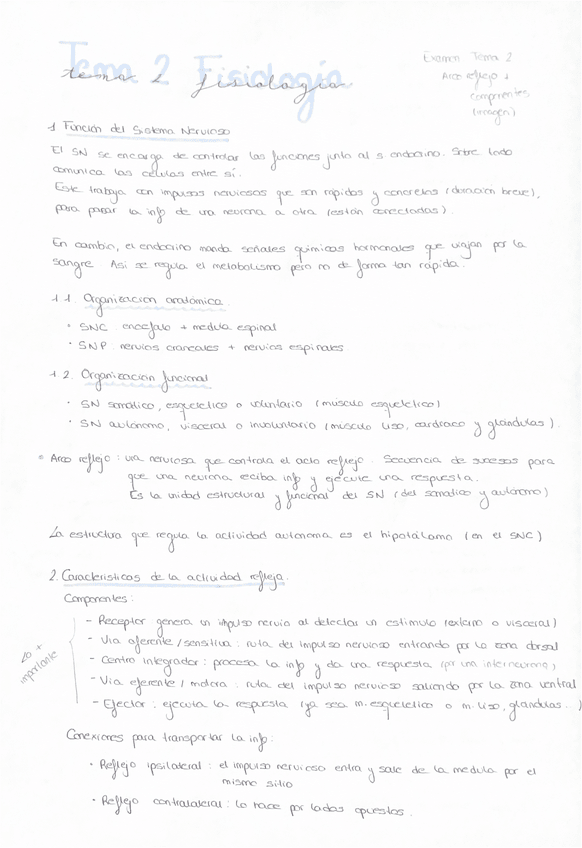 Tema 2 Fisiología
tema 2 fisiologia
Examen Tema 2
Arco reflejo y
componentes
(imagen)
1 Función del Sistema Nervioso
El SN se encarga de controlar las funciones junto al s endocrino. Sobre todo
comunica las células entre sí.
Este trabaja con impulsos nerviosos que son rápidos y concretos (duración breve),
para pasar la info de una neurona a otra (están conectadas).
En cambio, el endocrino manda señales químicas hormonales que viajan por la
sangre Asi se regula el metabolismo pero no de forma tan rápida.
1 1. Organización anatómica
· SNC encefalo + medula espinal
· SNP nervios craneales + nervios espinales
1 2. Organización funcional
· SN somático, esquelético o voluntario (músculo esquelético)
· SN autónomo, visceral o involuntario (músculo liso, cardíaco y glándulas).
Arco reflejo : via nerviosa que controla el acto reflejo. Secuencia de sucesos para
que una neurona reciba info y ejecute una respuesta.
Es la unidad estructural y funcional del SN (del somatico y autónomo)
La estructura que regula la actividad autonoma es el hipotálamo (en el SNC)
2. Caracteristicas de la actividad refleja.
Componentes:
lo +
importante
- Receptor genera un impulso nervio al detectar un estimulo (externo o visceral)
- Via aferente / sensitiva : ruta del impulso nervioso entrando por la zona dorsal
- Centro integrador : procesa la info y da una respuesta (por una interneurona)
- Via eferente / motora : ruta del impulso nervioso saliendo por la zona ventral
- Efector : ejecuta la respuesta (ya sea m. esqueletico o m. liso, glandulas...)
Conexiones para transportar la info:
· Reflejo ipsilateral : el impulso nervioso entra y sale de la medula por el
mismo sitio
· Reflejo contralateral : lo hace por lados opuestos.